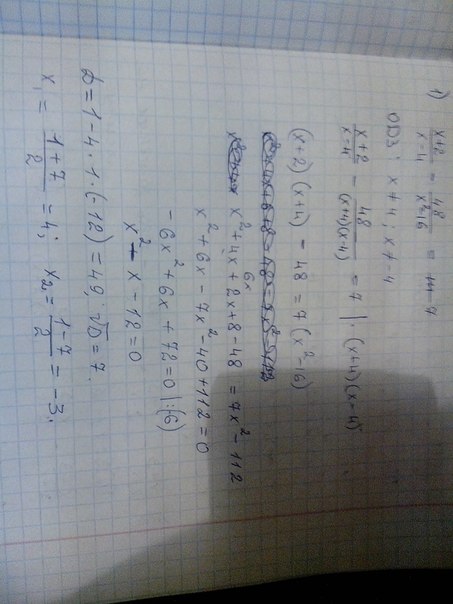 1) (x+2)/(x-4) = 48/(x²-16) = 7
ОДЗ: x ≠ 4; x ≠ -4
(x+2)/(x-4) = 48/((x+4)(x-4)) = 7 | · (x+4)(x-4)
(x+2)(x+4) - 48 = 7(x²-16)
6x
x²+4x+2x+8-48 = 7x²-112
x²+6x-7x²-40+112=0
-6x²+6x+72=0 |:(6)
x²-x-12=0
D=1-4·1·(-12)=49; √D=7.
x₁ = (1+7)/2 = 4; x₂ = (1-7)/2 = -3.